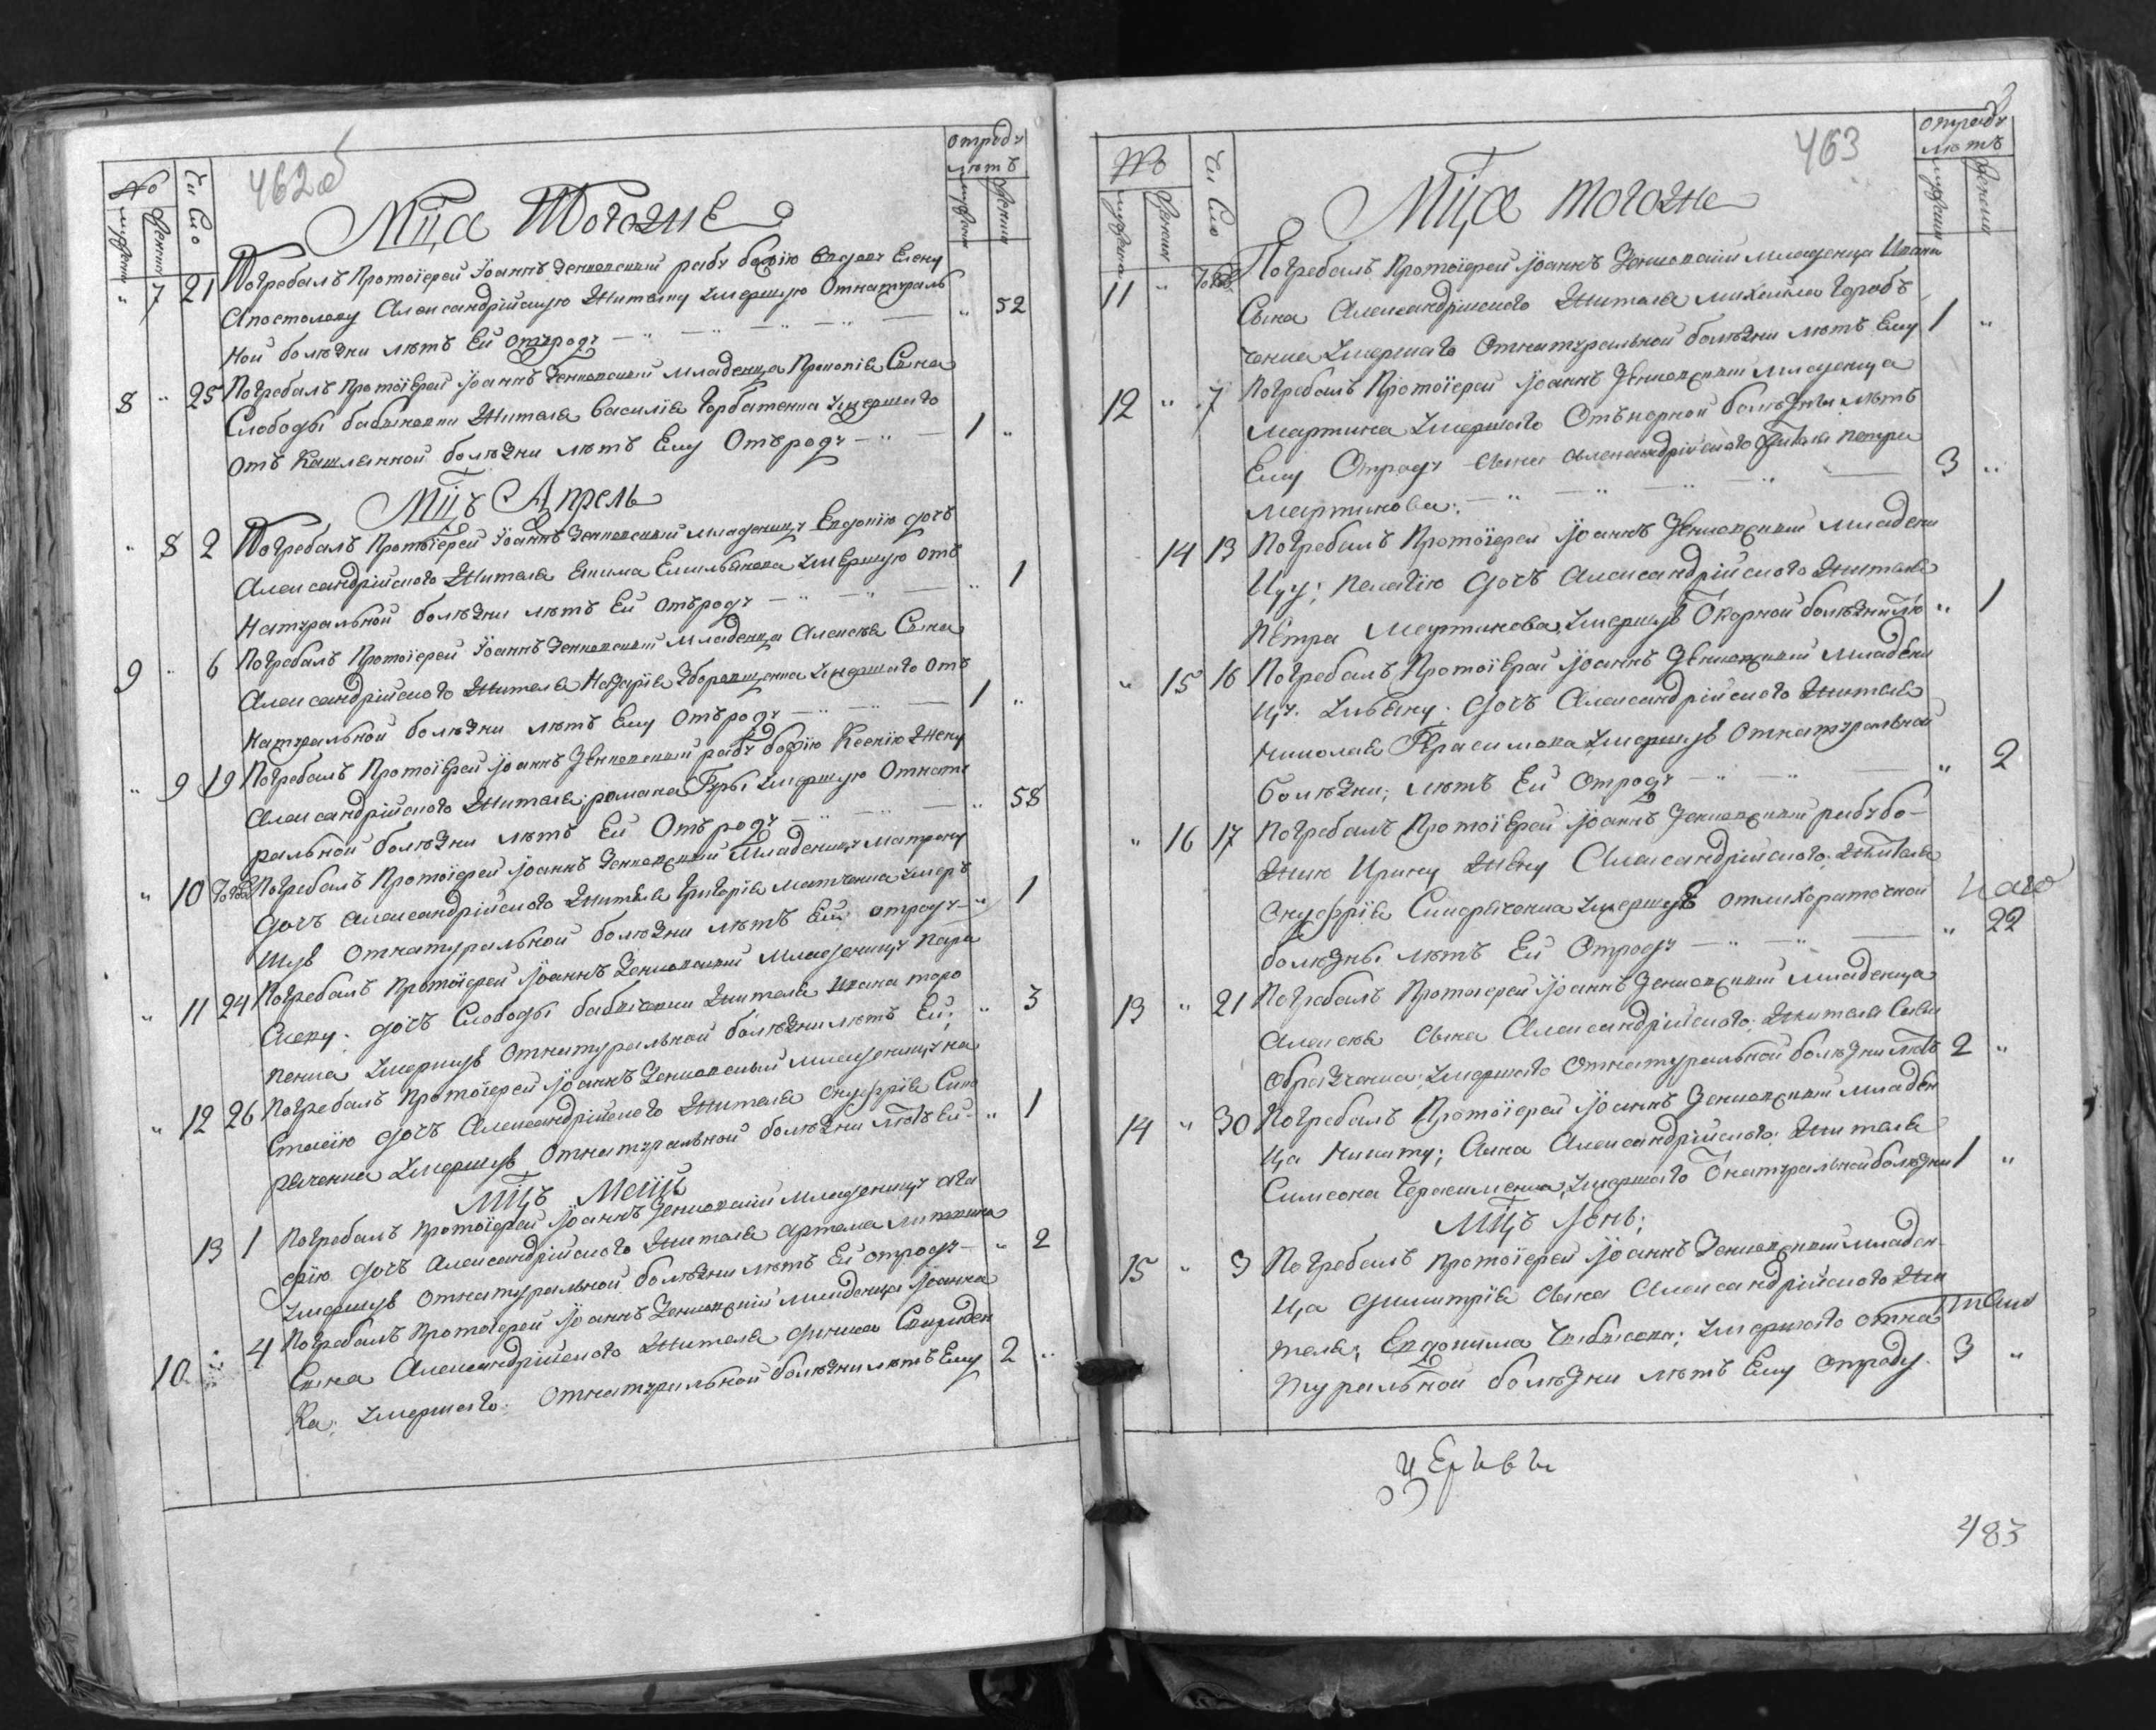 462об
№
Число
отроду
лѣтъ
мужеска
женска
мужеска
женска
Мца Тогоже
" 7 21 Погребалъ Протоіерей Іоаннъ Зеньковский рабу божію вдову Елену
Апостолову Александрійскую Жителку Умершую Отнатураль
ной болѣзни лѣтъ Ей отъроду " 52
8 " 25 Погребалъ Протоіерей Іоаннъ Зеньковский младенца Прокопія Сына
Слободы бабенковки Жителя Василія Горбатенка Умершаго
отъ Кашлянной болѣзни лѣтъ Ему Отъроду 1 "
Мцъ Апрель
" 8 2 Погребалъ Протоіерей Іоаннъ Зеньковский младеницу Евдокію дочь
Александрійского Жителя Екима Емильянова Умершую отъ
Натуральной болѣзни лѣтъ Ей отъроду " 1
9 " 6 Погребалъ Протоіерей Іоаннъ Зеньковский Младенца Алексѣя Сына
Александрійского Жителя Назарія Умершаго отъ
натуральной болѣзни лѣтъ Ему отъроду 1 "
" 9 19 Погребалъ Протоіерей Іоаннъ Зеньковский рабу божію Ксенію Жену
Александрійского Жителя романа Гуры Умершую Отнату
ральной болѣзни лѣтъ Ей Отъроду " 58
" 10 Тогож Погребалъ Протоіерей Іоаннъ Зеньковский Младеницу Матрону
дочь Александрійского Жителя Григорія Матченка Умер
шую отнатуральной болѣзни лѣтъ Ей отроду " 1
" 11 24 Погребалъ Протоіерей Іоаннъ Зеньковский Младеницу Пара
скеву дочь Слободы Жителя Ивана торо
пенка Умершую отнатуральной болѣзни лѣтъ Ей; " 3
" 12 26 Погребалъ Протоіерей Іоаннъ Зеньковский младеницу на
стасію дочь Александрійского Жителя Онуфрія Ско
Умершую Отнатуральной болѣзни лѣтъ Ей " 1
Мцъ Маій
13 1 Погребалъ Протоіерей Іоаннъ Зеньковский Младеницу Ага
фію дочь Александрійского Жителя Артема
Умершую отнатуральной болѣзни лѣтъ Ей отроду " 2
10 4 Погребалъ Протоіерей Іоаннъ Зеньковский Младенца Іоанна
Сына Александрійского Жителя Свириден
ка; Умершаго; отнатуральной болѣзни лѣтъ Ему 2 "
463
№
Число
отроду
лѣтъ
мужеска
женска
мужеска
женска
Мца тогоже
11 " Тогож Погребалъ Протоіерей Іоаннъ Зеньковский младенца Ивана
Сына Александрійского Жителя михайла Гороб
ченка Умершаго Отнатуральной болѣзни лѣтъ Ему 1 "
12 " 7 Погребалъ Протоіерей Іоаннъ Зеньковский младенца
мартина Умершаго Отъкорной болѣзни лѣтъ
Ему Отроду сына Александрійского Жителя петра
Мартинова; 3 "
14 13 Погребалъ Протоіерей Іоаннъ Зеньковский младени
цу; пелагію дочь Александрійского Жителя
Петра Мартинова, Умершую Окорной болѣзни " 1
" 15 16 Погребалъ Протоіерей Іоаннъ Зеньковский младени
цу. Ульяну; дочь Александрійского Жителя
николая Умершую Отнатуральной
болѣзни; лѣтъ Ей отроду " 2
" 16 17 Погребалъ Протоіерей Іоаннъ Зеньковский рабу бо-
жию Ирину Жену Александрійского; Жителя
Онуфрія Умершую отлихораточной
болѣзны лѣтъ Ей Отроду " 22
13 " 21 Погребалъ Протоіерей Іоаннъ Зеньковский младенца
Алексѣя сына Александрійского; Жителя Савы
Умершаго Отнатуральной болѣзни лѣтъ 2 "
14 " 30 Погребалъ Протоіерей Іоаннъ Зеньковский младен
ца никиту; Сына Александрійского; Жителя
Симеона Герасименка; Умершаго Онатуральной болѣзни 1 "
Мцъ Іюнь;
15 " 3 Погребалъ Протоіерей Іоаннъ Зеньковский младен-
ца дмитрія сына Александрійского Жи
теля; Евдокима Умершаго отна
туральной болѣзни лѣтъ Ему отроду. 3 "
церквы
483